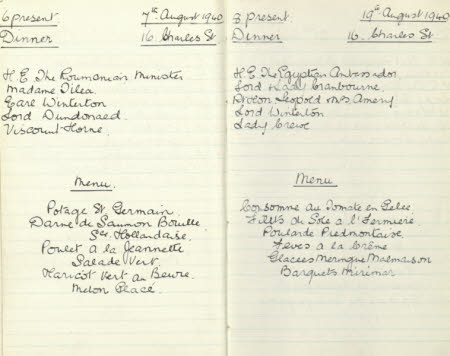 6 present. 7th August 1940
Dinner 16 Charles St
H.E The Roumanian Minister
Madame Tilea.
Earl Winterton
Lord Dundonald.
Viscount Horne.
Menu.
Potage St Germain.
Darne de Saumon Bouille
Sce. Hollandaise.
Poulet a la Jeannette
Salade Vert.
Haricot Vert au Beurre.
Melon Glacé.
8 present. 19th August 1940
Dinner 16 Charles St.
H.E The Egyptian Ambassador
Lord & Lady Cranbourne.
Rt Hon Leopold & Mrs Amery
Lord Winterton
Lady Crewe
Menu
Consomme au Tomate en Gelee.
Filets de Sole a l'Fermiere
Poularde Piedmontaise.
Feves a la Crême
Glacees Meringue Malmaison
Barquets Mirimar